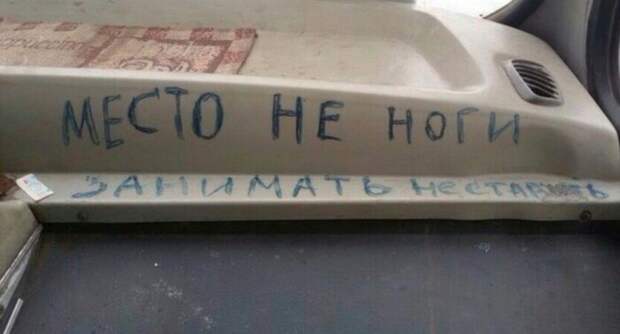 МЕСТО НЕ НОГИ
ЗАНИМАТЬ НЕСТАВИТЬ